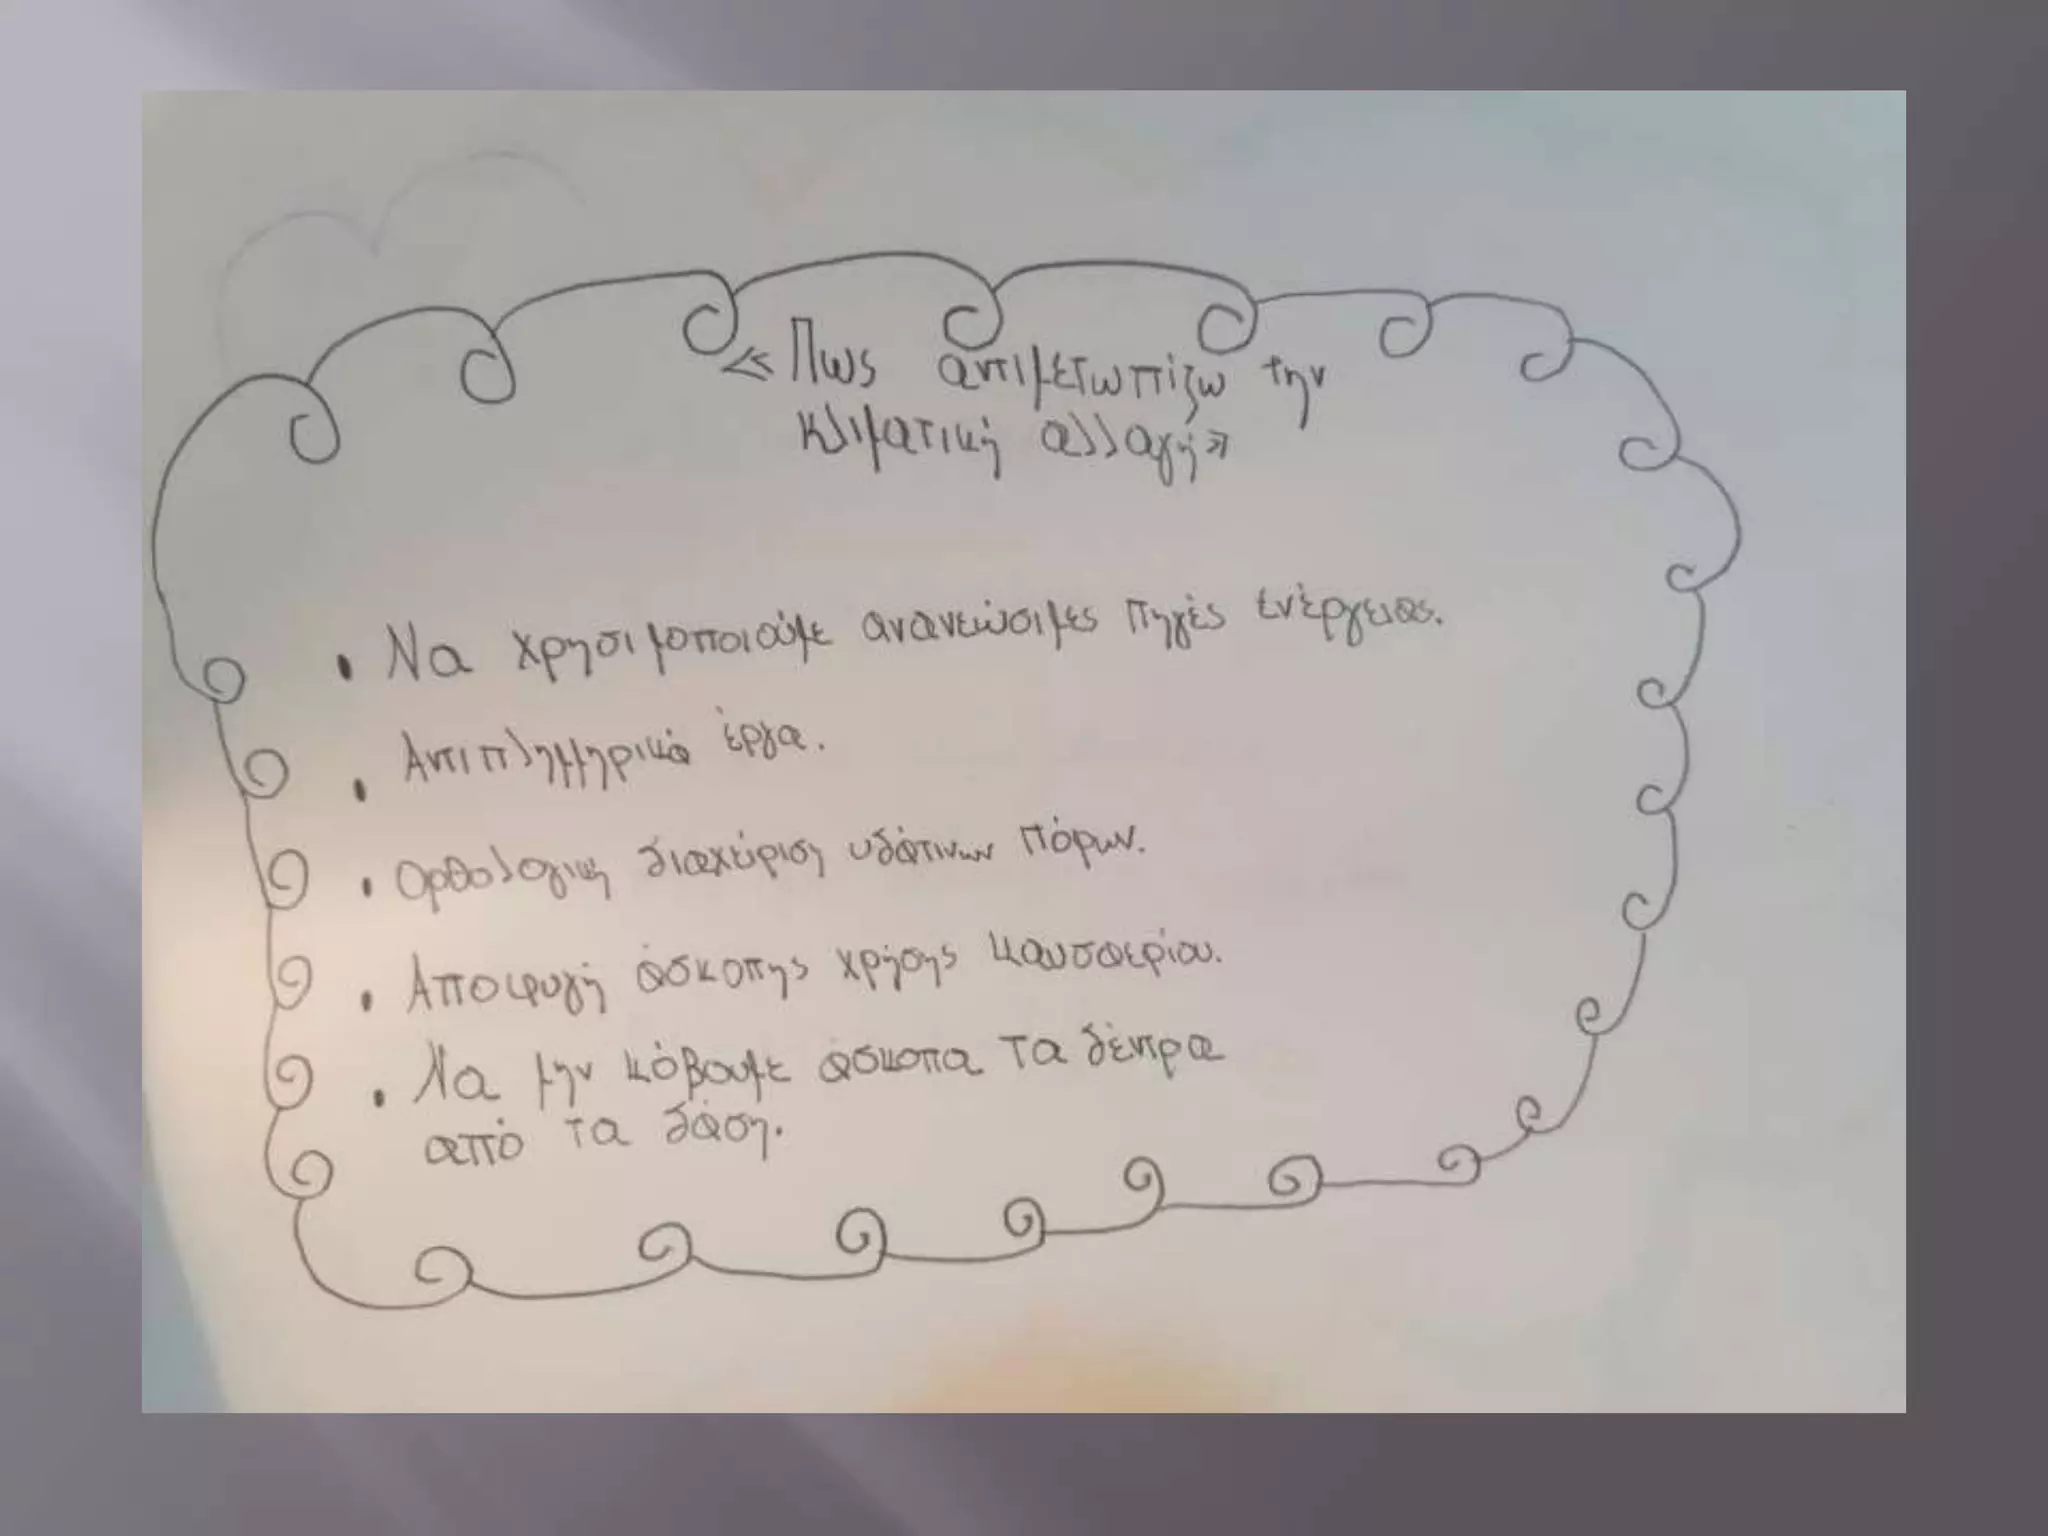 «Πως αντιμετωπίζω την
κλιματική αλλαγή»
• Να χρησιμοποιούμε ανανεώσιμες πηγές ενέργειας.
• Αντιπλημμηρικά έργα.
• Ορθολογική διαχείριση υδάτινων πόρων.
• Αποφυγή άσκοπης χρήσης
• Να μην κόβουμε άσκοπα τα δέντρα
από τα δάση.